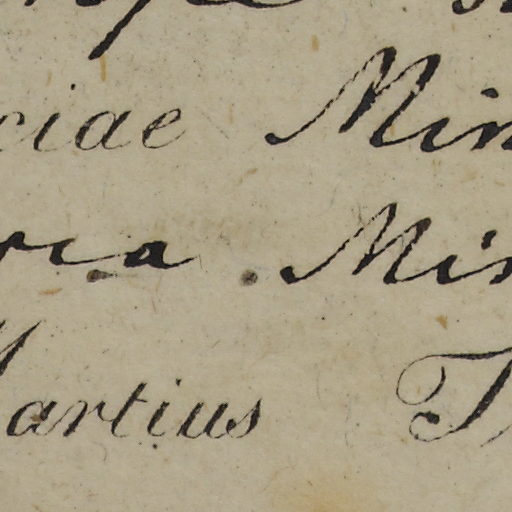 ciae Min
ria Min
Martius T